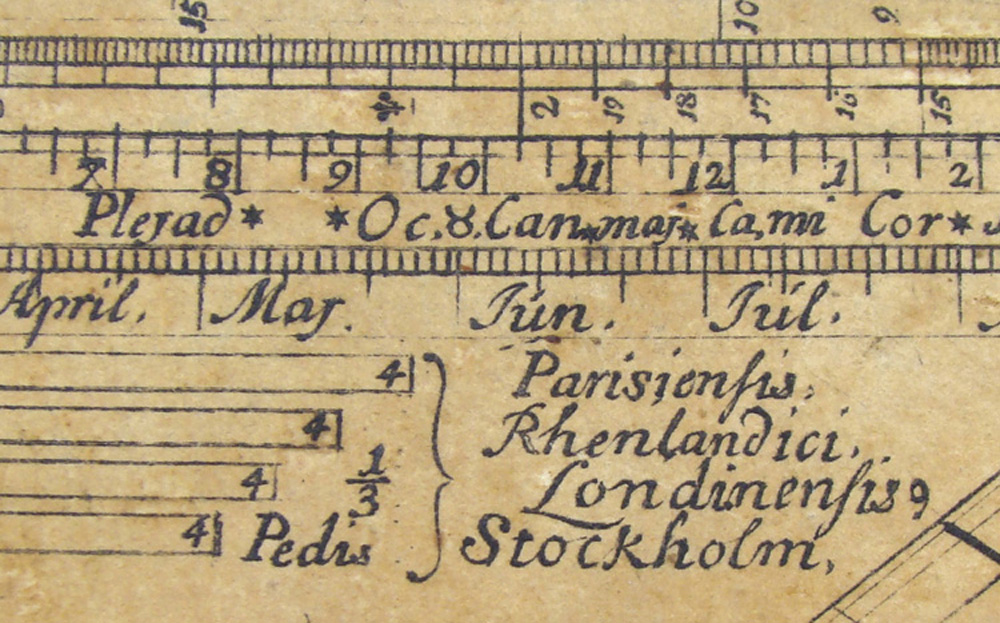 15 10 9
2 19 18 17 16 15
7 8 9 10 11 12 1 2
Plejad * * Oc. ♉. Can * maj * Ca, mi Cor *
April. Maj. Jún. Júl.
4 Parisiensis,
4 Rhenlandici.
4 1/3 Londinensis,
4 Pedis Stockholm,